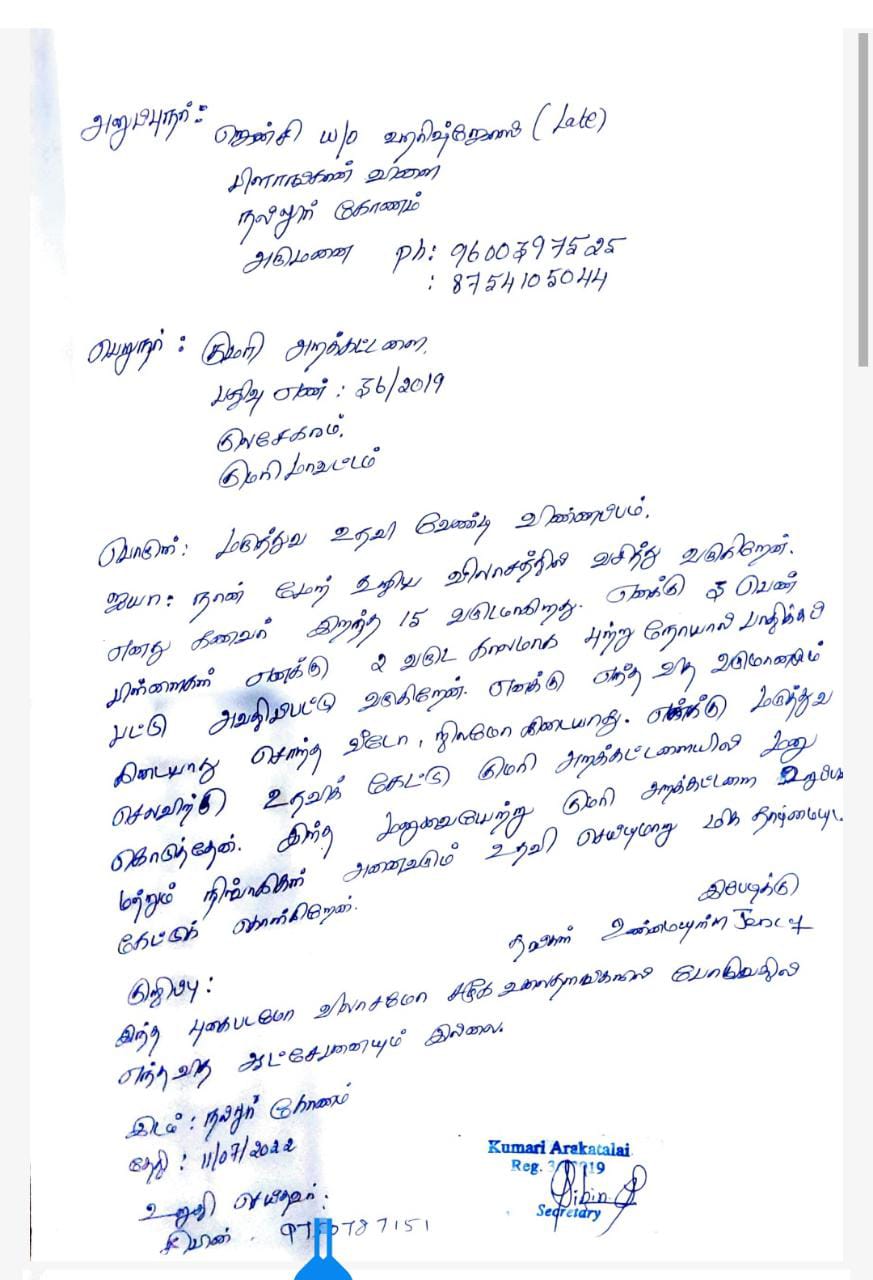 அனுப்புநர் :
ஜென்சி w/o வறிஷ்ஜேஸ் (Late)
பிளாங்கண் விளை
நல்லூர் கோணம்
அருமனை ph: 9600397525
: 8754105044
பெறுநர் : குமரி அறக்கட்டளை,
பதிவு எண் : 36/2019
குலசேகரம்,
குமரி மாவட்டம்
பொருள் : மருத்துவ உதவி வேண்டி விண்ணப்பம்.
ஐயா : நான் மேற் கூறிய விலாசத்தில் வசித்து வருகிறேன்.
எனது கணவர் இறந்து 15 வருடமாகிறது. எனக்கு 3 பெண்
பிள்ளைகள் எனக்கு 2 வருட காலமாக புற்று நோயால் பாதிக்கப்
பட்டு அவதிப்பட்டு வருகிறேன். எனக்கு எந்த வித வருமானமும்
கிடையாது சொந்த வீடோ, நிலமோ கிடையாது. எனக்கு மருத்துவ
செலவிற்கு உதவிக் கேட்டு குமரி அறக்கட்டளையில் மனு
கொடுத்தேன். இந்த மனுவையேற்று குமரி அறக்கட்டளை உறுப்பி
மற்றும் நிர்வாகிகள் அனைவரும் உதவி செய்யுமாறு மிக தாழ்மையுட
கேட்டுக் கொள்கிறேன்.
இப்படிக்கு
தங்கள் உண்மையுள்ள Jency
குறிப்பு :
இந்த புகைபடமோ விலாசமோ சமூக வலைதளங்களில் போடுவதில்
எந்த வித ஆட்சேபனையும் இல்லை.
இடம் : நல்லூர் கோணம்
தேதி : 11/07/2022
உறுதி செய்தவர் :
Kumari Arakatalai
Reg. 3 2019
Bibin
Secretary